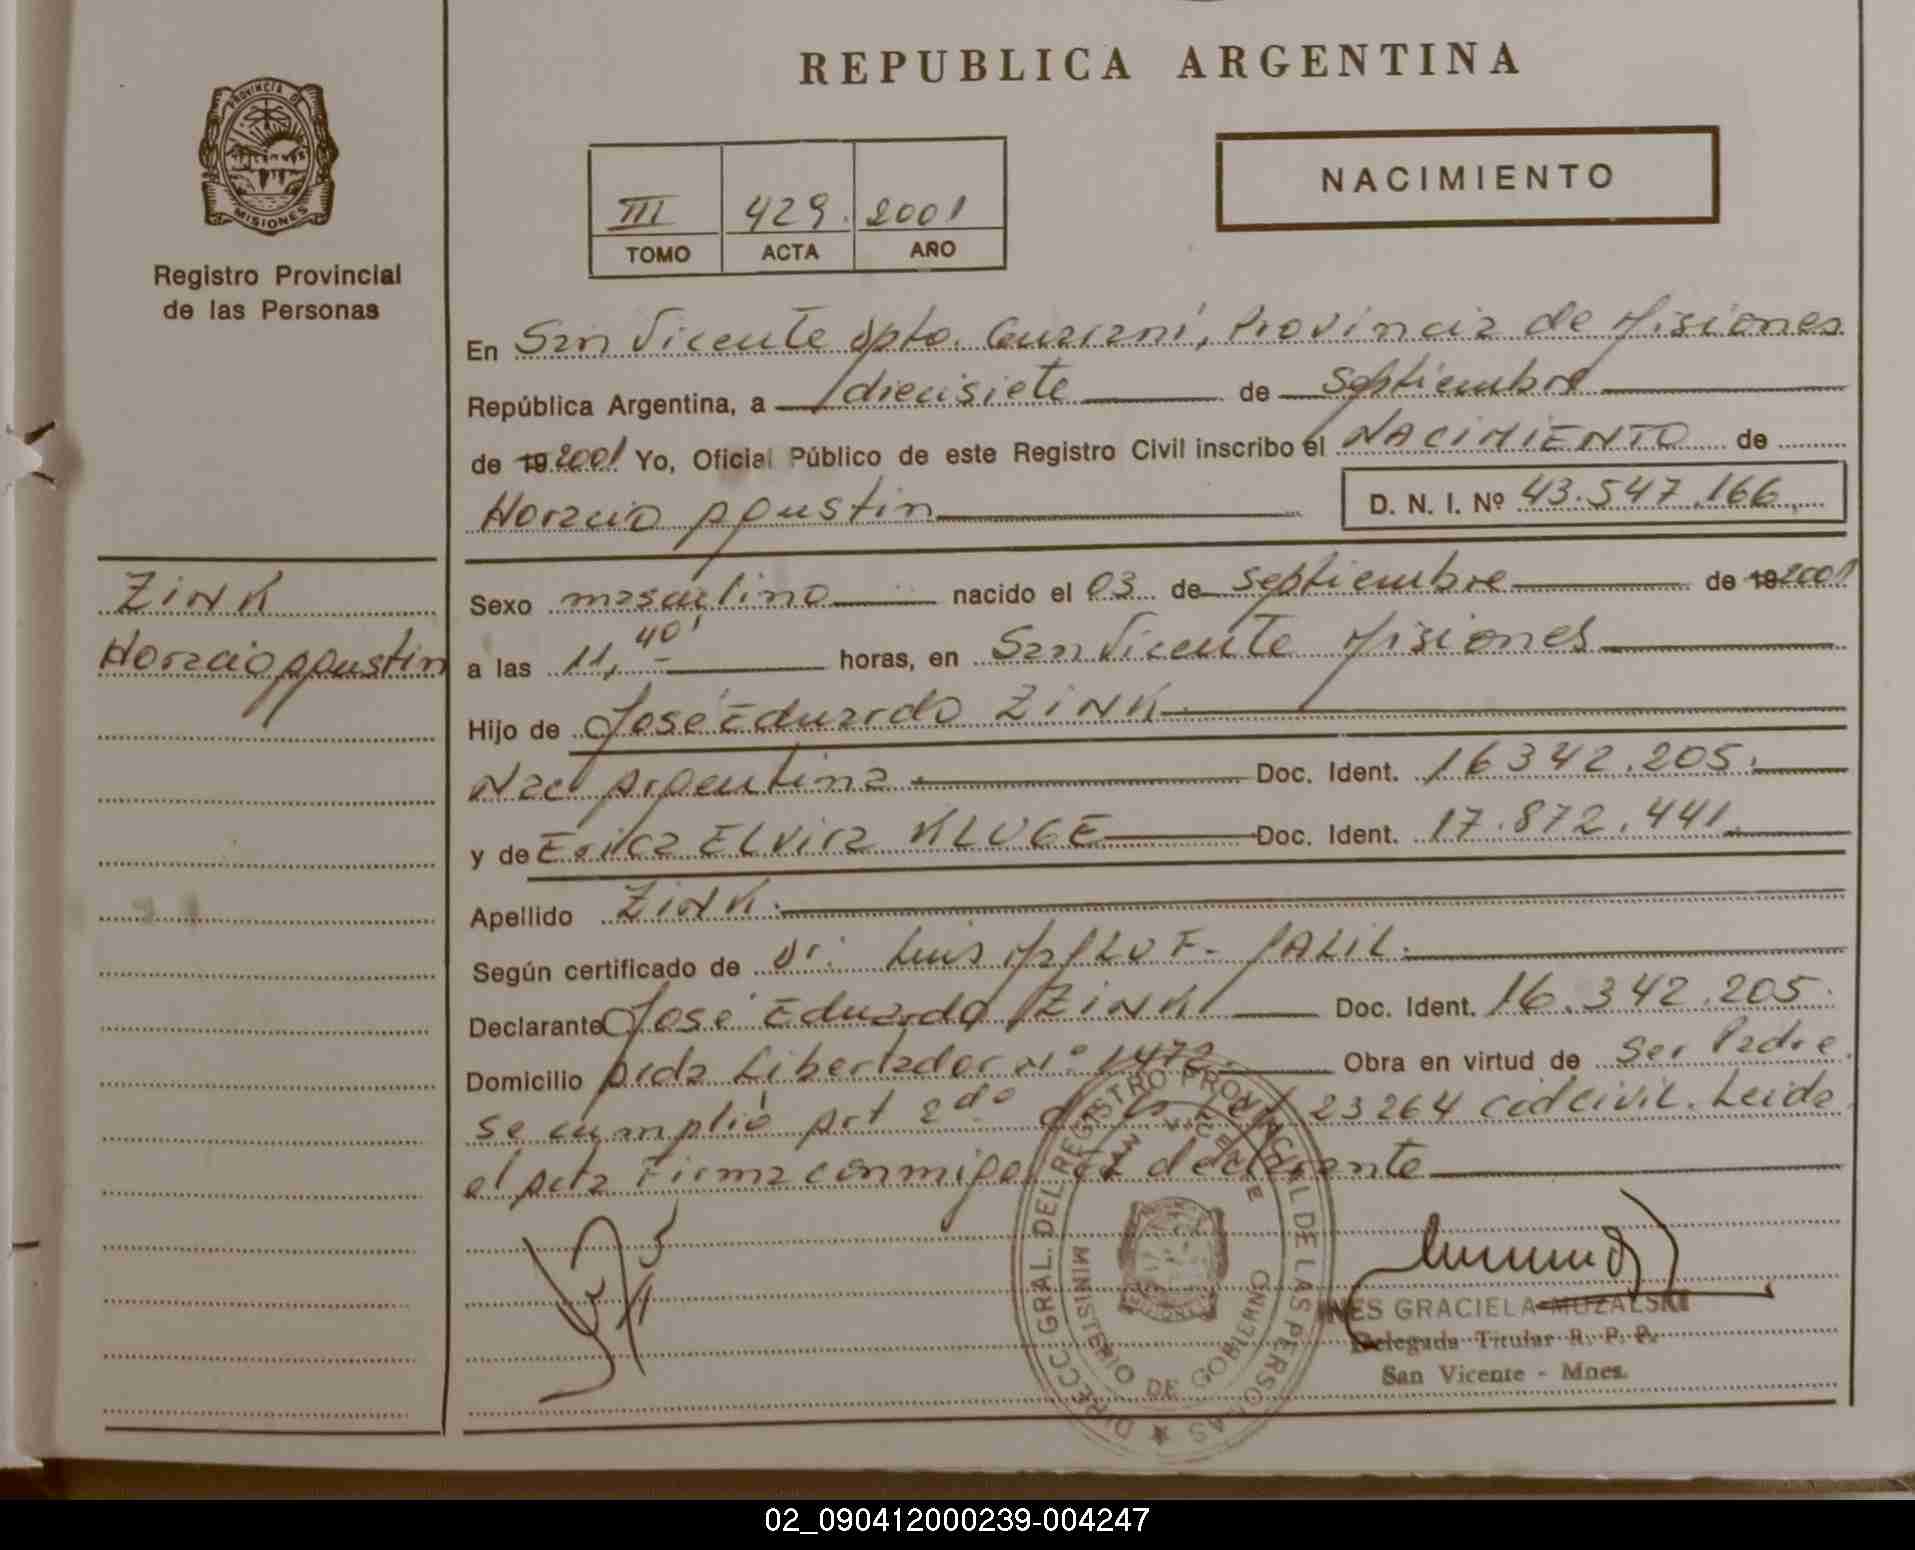 REPUBLICA ARGENTINA
PROVINCIA DE
MISIONES
Registro Provincial
de las Personas
NACIMIENTO
III 429. 2001
TOMO ACTA AÑO
En San Vicente Dpto. Guaraní, Provincia de Misiones
República Argentina, a diecisiete de septiembre
de 19 2001 Yo, Oficial Público de este Registro Civil inscribo el NACIMIENTO de
Horacio Agustin D. N. I. Nº 43.547.166
ZINK
Horacio Agustin
Sexo masculino nacido el 03 de septiembre de 19 2001
a las 11,40' horas, en San Vicente Misiones
Hijo de José Eduardo ZINK
Nac Argentina Doc. Ident. 16342.205.
y de Erica ELVira KLUGE Doc. Ident. 17.872.441
Apellido ZINK.
Según certificado de Dr. Luis F. JALIL.
Declarante José Eduardo ZINK Doc. Ident. 16.342.205.
Domicilio Avda Libertador Nº 1472. Obra en virtud de ser Padre.
Se cumplió Art 2do de la Ley 23264 Cod civil. Leida
el Acta Firma conmigo el declarante
DIRECC GRAL. DEL REGISTRO PROVINCIAL DE LAS PERSONAS
SAN VICENTE
MINISTERIO DE GOBIERNO
INES GRACIELA MUZALSKI
Delegada Titular R. P. P.
San Vicente - Mnes.
02_090412000239-004247